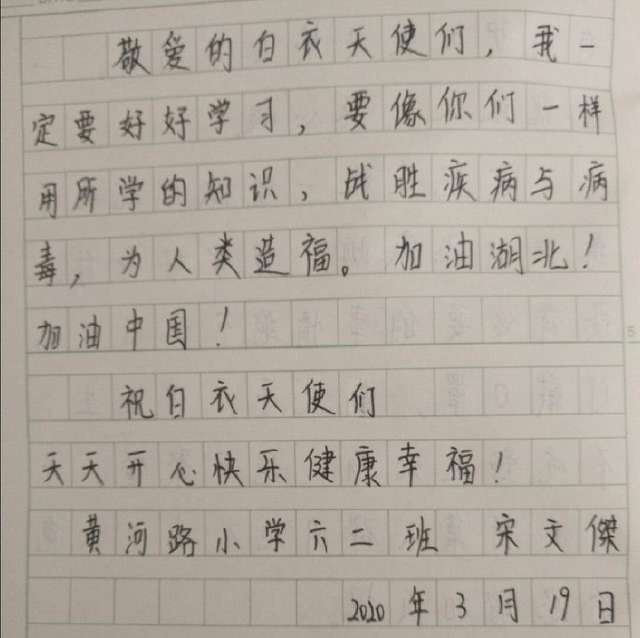 敬爱的白衣天使们，我一
定要好好学习，要像你们一样
用所学的知识，战胜疾病与病
毒，为人类造福。加油湖北！
加油中国！
祝白衣天使们
天天开心快乐健康幸福！
黄河路小学六二班 宋文傑
2020年3月19日